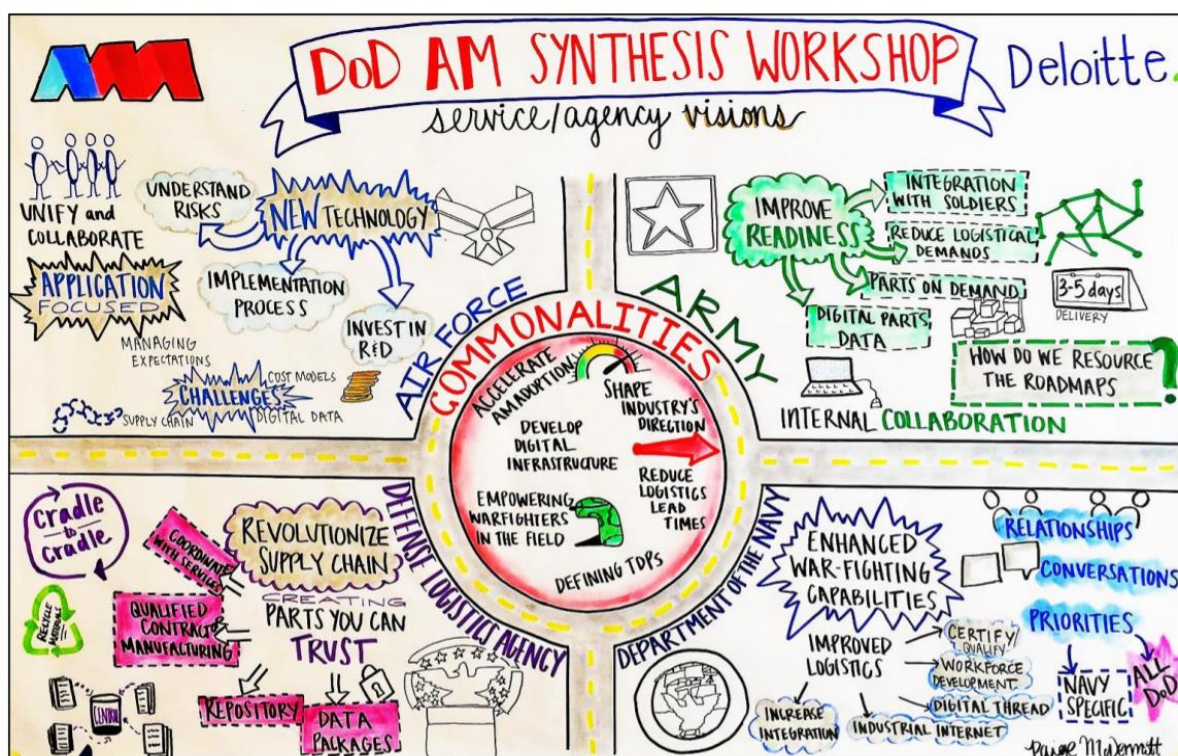 DoD AM SYNTHESIS WORKSHOP
service/agency visions
AM
Deloitte.
UNIFY and
COLLABORATE
APPLICATION
FOCUSED
UNDERSTAND
RISKS
NEW TECHNOLOGY
IMPLEMENTATION
PROCESS
INVEST IN
R&D
MANAGING
EXPECTATIONS
COST MODELS
CHALLENGES
SUPPLY CHAIN
DIGITAL DATA
AIR FORCE
ARMY
IMPROVE
READINESS
INTEGRATION
WITH SOLDIERS
REDUCE LOGISTICAL
DEMANDS
PARTS ON DEMAND
DIGITAL PARTS
DATA
3-5 days
DELIVERY
HOW DO WE RESOURCE
THE ROADMAPS ?
INTERNAL COLLABORATION
COMMONALITIES
ACCELERATE
AM ADOPTION
SHAPE
INDUSTRY'S
DIRECTION
DEVELOP
DIGITAL
INFRASTRUCTURE
REDUCE
LOGISTICS
LEAD
TIMES
EMPOWERING
WARFIGHTERS
IN THE FIELD
DEFINING TDPs
DEFENSE LOGISTICS AGENCY
Cradle
to
Cradle
COORDINATE
WITH SERVICES
REVOLUTIONIZE
SUPPLY CHAIN
CREATING
PARTS YOU CAN
TRUST
QUALIFIED
CONTRACTOR
MANUFACTURING
RECYCLE
MATERIALS
CENTRAL
REPOSITORY
DATA
PACKAGES
DEPARTMENT OF THE NAVY
ENHANCED
WAR-FIGHTING
CAPABILITIES
IMPROVED
LOGISTICS
CERTIFY/
QUALIFY
WORKFORCE
DEVELOPMENT
DIGITAL THREAD
INDUSTRIAL INTERNET
INCREASE
INTEGRATION
RELATIONSHIPS
CONVERSATIONS
PRIORITIES
NAVY
SPECIFIC
ALL
DoD